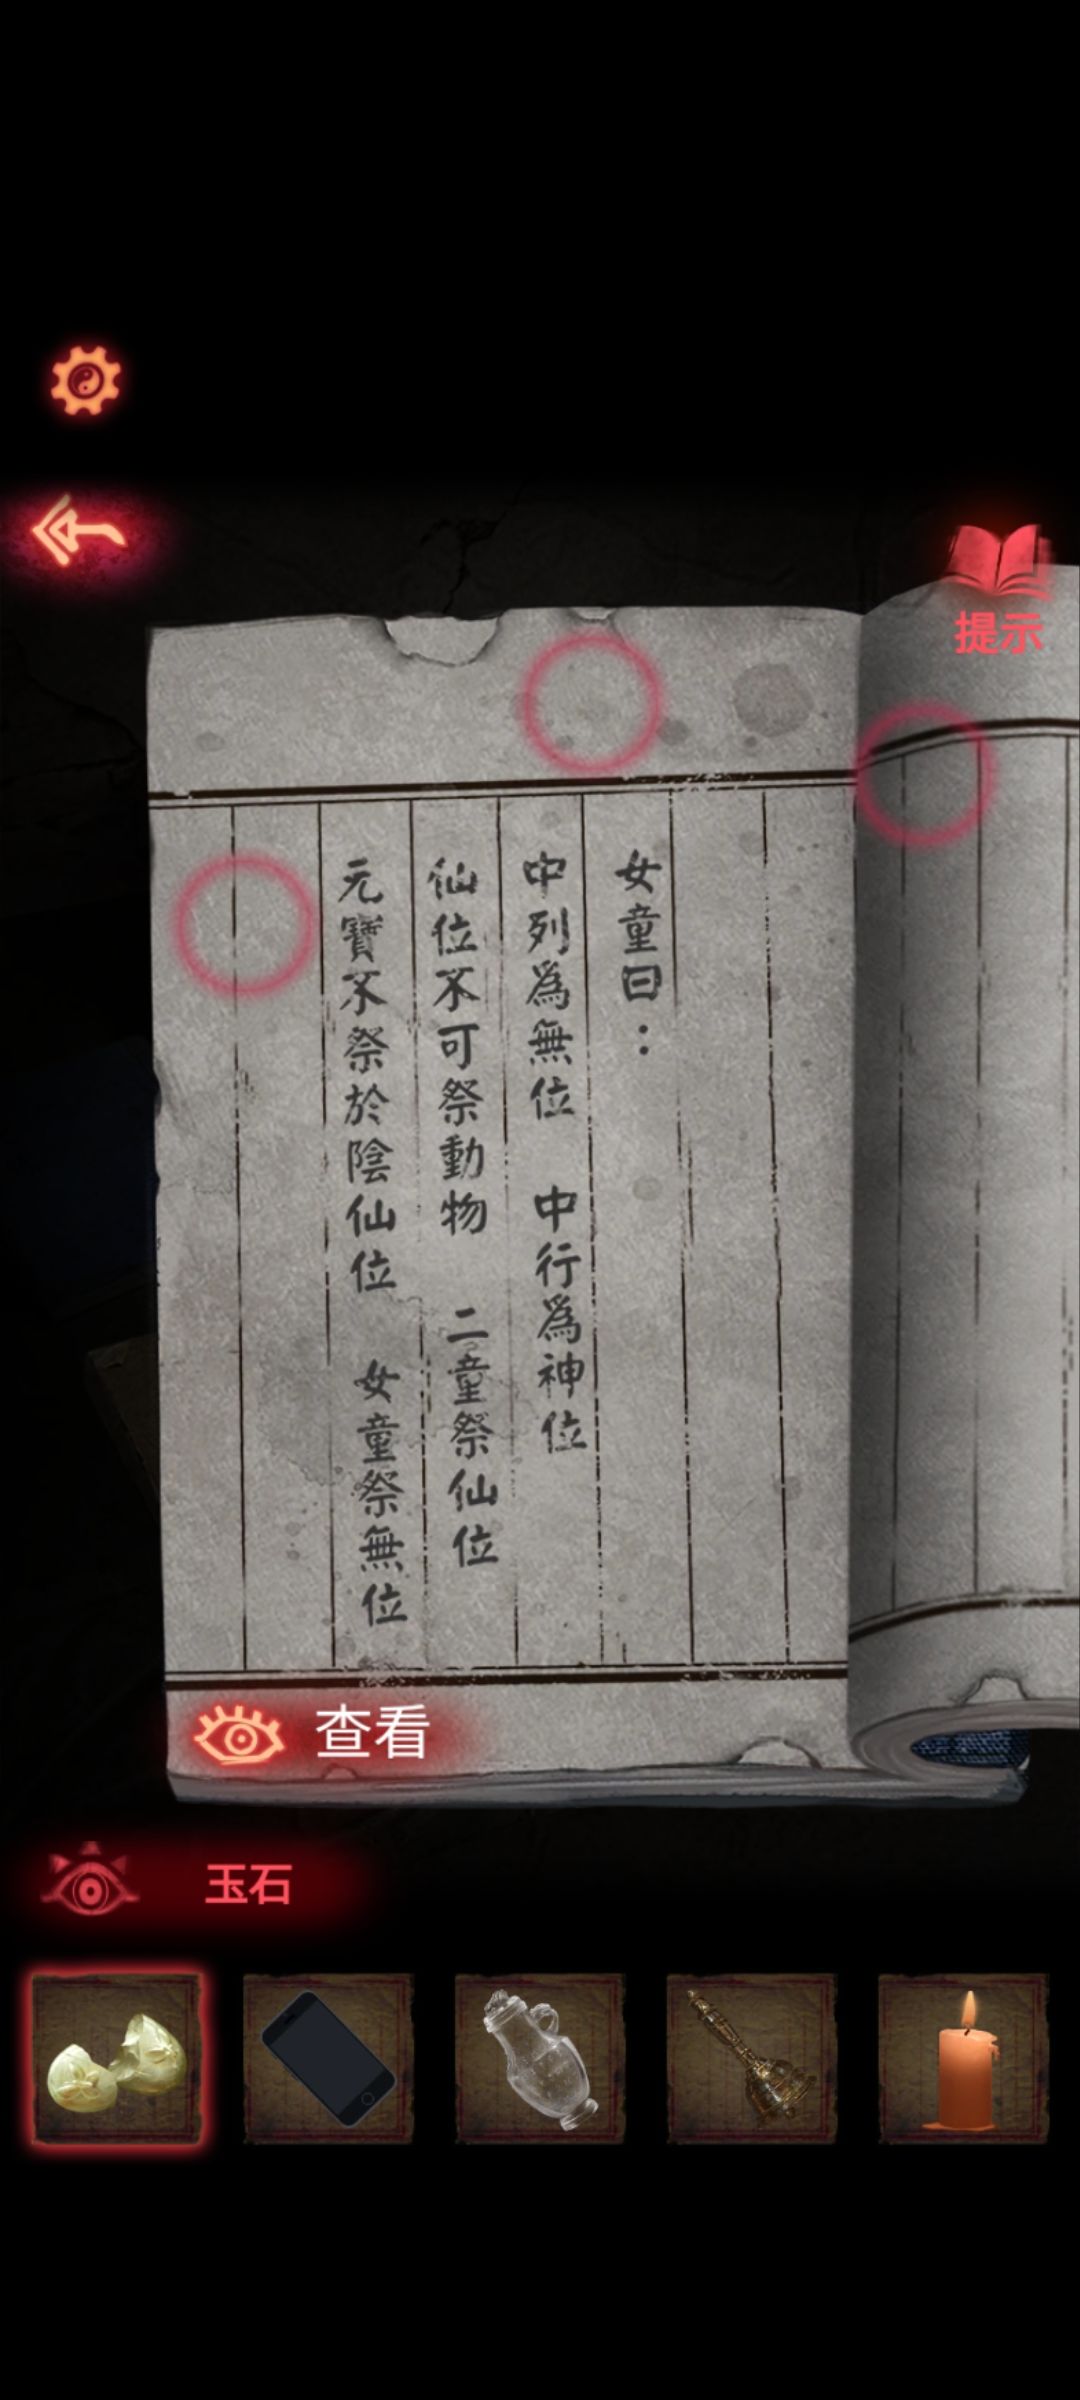 提示
女童曰：
中列為無位　中行為神位
仙位不可祭動物　二童祭仙位
元寶不祭於陰仙位　女童祭無位
查看
玉石